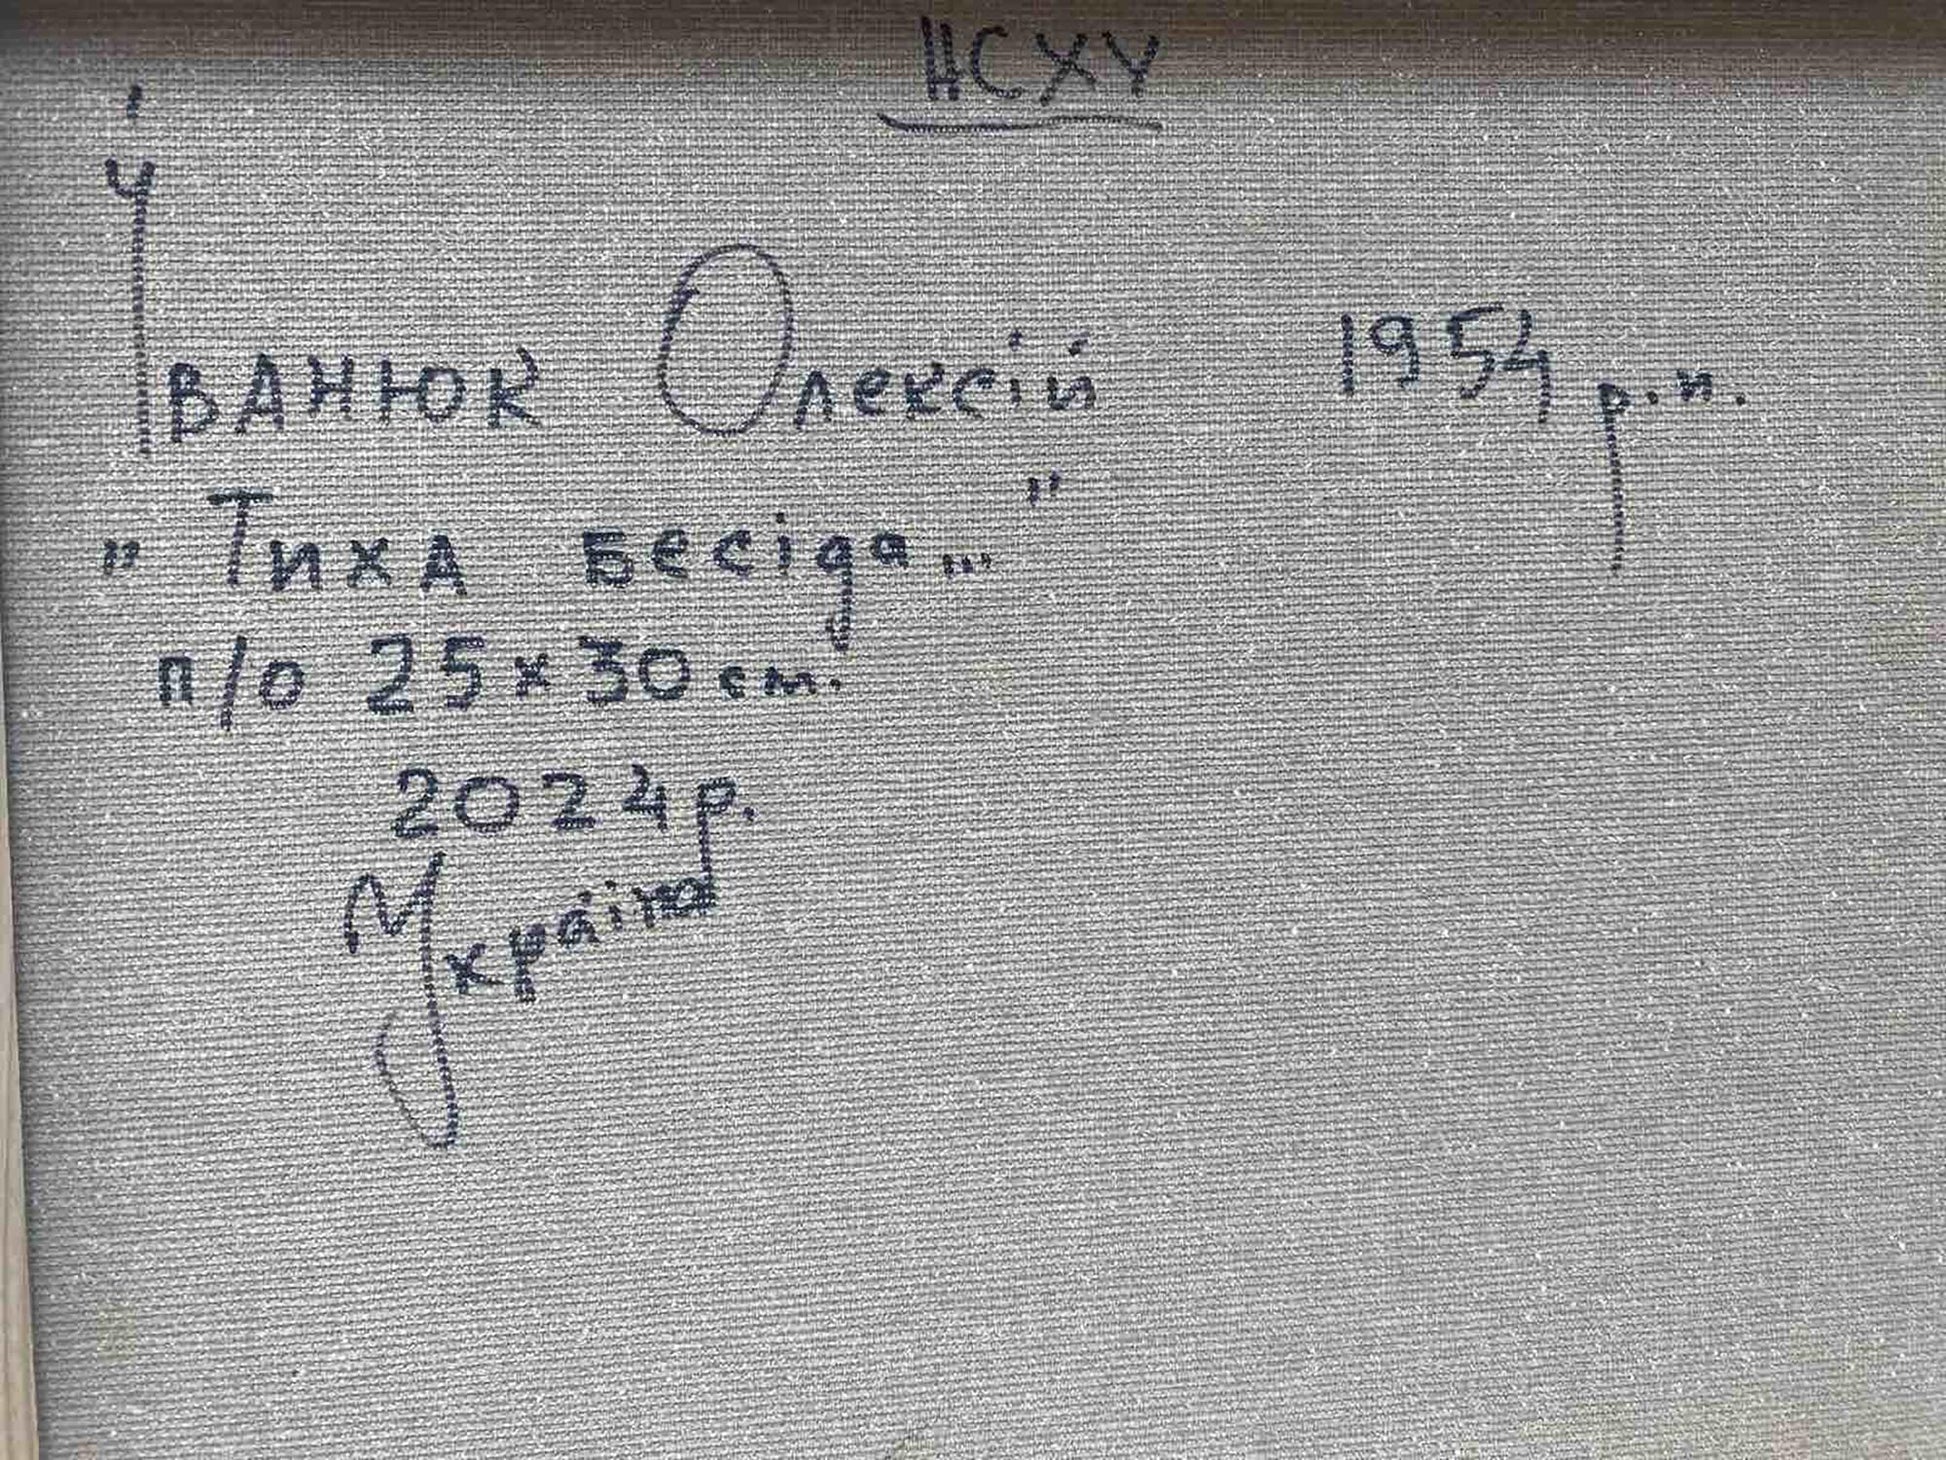 НСХУ
Іванюк Олексій 1954 р.н.
"Тиха бесіда..."
п/о 25x30 см.
2024р.
Україна